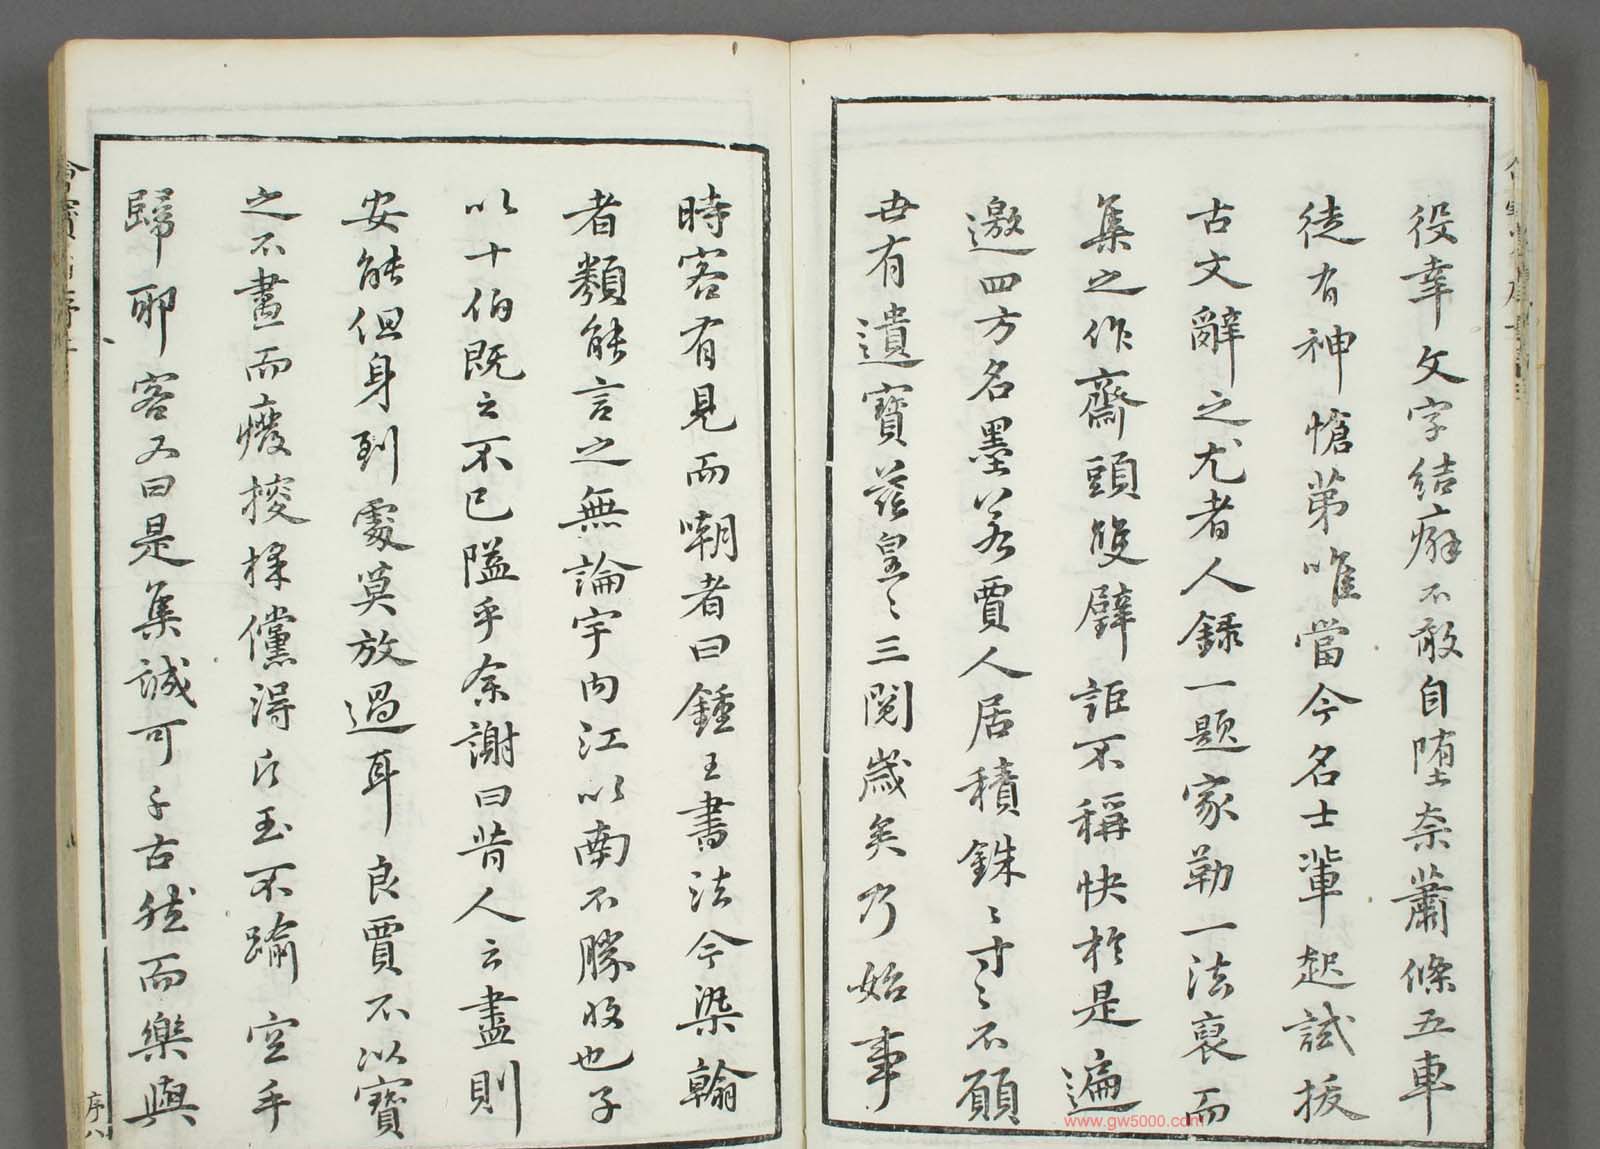 役幸文字結癖不敢自墮奈蕭條五車
徒有神愴第唯當今名士輩起試扳
古文辭之尤者人錄一題家勒一法裒而
集之作齋頭雙璧詎不稱快於是遍
邀四方名墨若賈人居積銖〻寸〻不願
世有遺寶茲皇〻三閱歲矣乃始事
時客有見而嘲者曰鍾王書法今染翰
者類能言之無論宇內江以南不勝收也子
以十伯既云不已隘乎余謝曰昔人云盡則
安能但身到處莫放過耳良賈不以寶
之不盡而癈榜儻得片玉不踰空手
歸耶客又曰是集誠可千古然而樂與
序八
www.gw5000.com